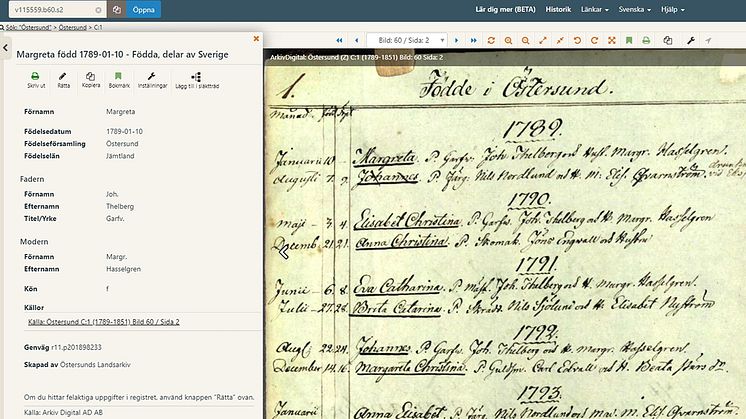 v115559.b60.s2
Öppna
Lär dig mer (BETA) Historik Länkar Svenska Hjälp
Sök: "Östersund" > Östersund > C:1
Margreta född 1789-01-10 - Födda, delar av Sverige
Skriv ut Rätta Kopiera Bokmärk Inställningar Lägg till i släktträd
Förnamn Margreta
Födelsedatum 1789-01-10
Födelseförsamling Östersund
Födelselän Jämtland
Fadern
Förnamn Joh.
Efternamn Thelberg
Titel/Yrke Garfv.
Modern
Förnamn Margr.
Efternamn Hasselgren
Kön f
Källor
Källa: Östersund C:1 (1789-1851) Bild 60 / Sida 2
Genväg r11.p201898233
Skapad av Östersunds Landsarkiv
Om du hittar felaktiga uppgifter i registret, använd knappen "Rätta" ovan.
Källa: Arkiv Digital AD AB
Bild: 60 / Sida: 2
ArkivDigital: Östersund (Z) C:1 (1789-1851) Bild: 60 Sida: 2
1. Födde i Östersund.
Månad.
1789.
Januarii 10 Margreta. P. Garfv. Joh. Thelberg och Hust. Margr. Hasselgren.
Augusti 7. 9. Johannes. P. Färg. Nils Nordlund och H. M. Elis. Qvarnström
1790.
Maji 3. 4. Elisabet Christina. P. Garfv. Joh. Thelberg och H. Margr. Hasselgren
Decemb. 21. 21. Anna Christina. P. Skomak. Jöns Engvall och Hustru
1791.
Junii 6. 8. Eva Catharina. P. Joh. Thelberg och H. Margr. Hasselgren.
Julii 27. 28. Brita Catarina. P. Skrädd. Nils Sjölund och H. Elisabet Nyström
1792.
Aug. 22. 24. Johannes. P. Garfv. Joh. Thelberg och H. Margr. Hasselgren.
December 14. 16. Margareta Christina. P. Guldsm. Carl Edvall och H. Beata
1793.
Januarii Anna Elisabet. P. Färg. Nils Nordlund och M. Elis. Qvarnström